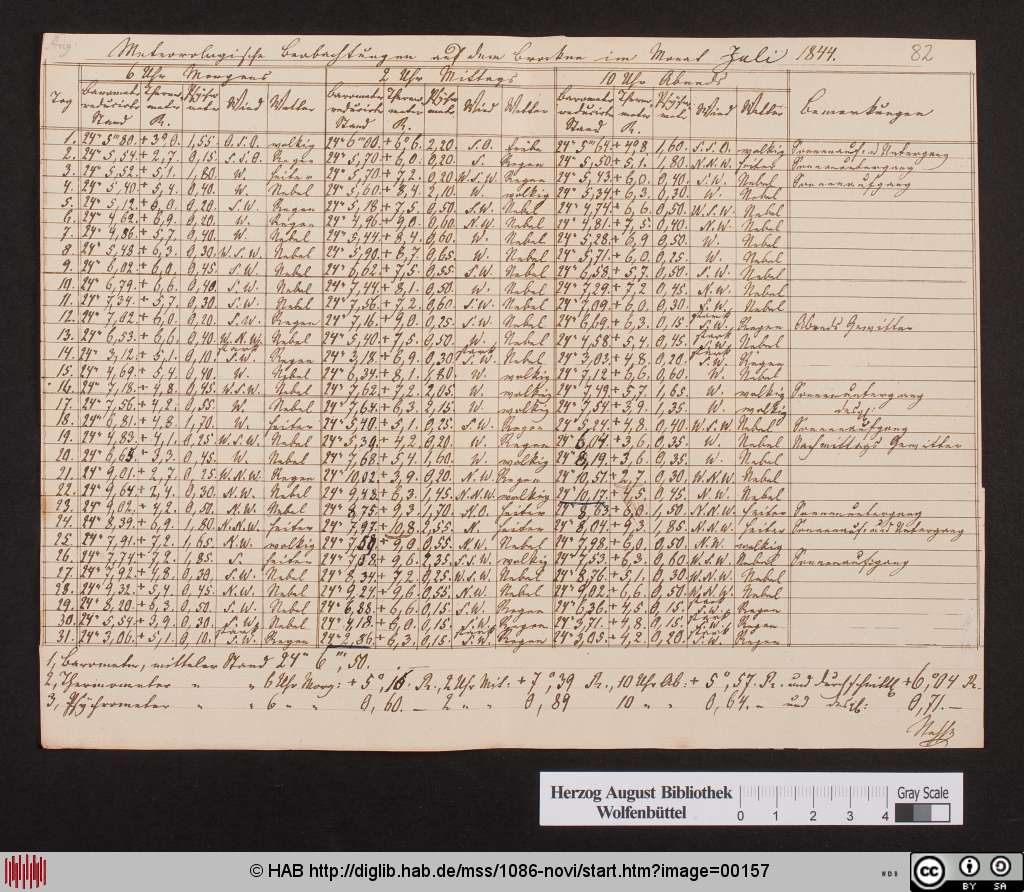 Aug.
Meteorologische Beobachtungen auf dem Brocken im Monat Juli 1844. 82
6 Uhr Morgens 2 Uhr Mittags 10 Uhr Abends
Tag Baromet: reducirt: Stand Thermo meter R. Psychro meter Wind Wetter Baromet: reducirt: Stand Thermo meter R. Psychro met: Wind Wetter Baromet: reducirt: Stand Thermo meter R. Psychro met: Wind Wetter Bemerkungen
1. 24" 5'''80. + 3°9. 1,55. O.S.O. wolkig 24" 6'''00. + 6°6. 2,20. S.O. trübe 24" 5'''64. + 4°8. 1,60. S.S.O. wolkig Sonnenauf: u Untergang
2. 24" 5,54. + 2,7. 0,15. S.S.O. Regen 24" 5,70. + 6,0. 0,20. S. Regen 24" 5,50. + 5,1. 1,80. N.N.W. heiter Sonnenuntergang
3. 24" 5,52. + 5,1. 1,80. W. heiter 24" 5,70. + 7,2. 0,20. W.S.W. Regen 24" 5,43. + 6,0. 0,40. S.W. Nebel Sonnenaufgang
4. 24" 5,40. + 5,4. 0,40. W. Nebel 24" 5,60. + 8,4. 2,10. W. wolkig 24" 5,34. + 6,3. 0,30. W. Nebel
5. 24" 5,12. + 6,0. 0,20. S.W. Regen 24" 5,18. + 7,5. 0,50. S.W. Nebel 24" 4,74. + 6,6. 0,50. W.S.W. Nebel
6. 24" 4,69. + 6,9. 0,20. W. Regen 24" 4,96. + 9,0. 0,60. N.W. Nebel 24" 4,81. + 7,5. 0,40. N.W. Nebel
7. 24" 4,86. + 5,7. 0,40. W. Nebel 24" 5,44. + 8,4. 0,60. W. Nebel 24" 5,28. + 6,9. 0,50. W. Nebel
8. 24" 5,48. + 6,3. 0,30. W.S.W. Nebel 24" 5,90. + 6,7. 0,65. W. Nebel 24" 5,71. + 6,0. 0,25. W. Nebel
9. 24" 6,02. + 6,0. 0,45. S.W. Nebel 24" 6,62. + 7,5. 0,55. S.W. Nebel 24" 6,58. + 5,7. 0,50. S.W. Nebel
10. 24" 6,79. + 6,6. 0,40. S.W. Nebel 24" 7,44. + 8,1. 0,50. W. Nebel 24" 7,29. + 7,2. 0,45. N.W. Nebel
11. 24" 7,34. + 5,7. 0,30. S.W. Nebel 24" 7,56. + 7,2. 0,60. S.W. Nebel 24" 7,09. + 6,0. 0,30. S.W. Nebel
12. 24" 7,02. + 6,0. 0,20. S.W. Regen 24" 7,16. + 9,0. 0,25. S.W. Nebel 24" 6,69. + 6,3. 0,15. stark S.W. Regen Abends Gewitter
13. 24" 6,53. + 6,6. 0,40. W.N.W. Nebel 24" 5,40. + 7,5. 0,50. W. Nebel 24" 4,58. + 5,4. 0,45. stark S.W. Nebel
14. 24" 3,12. + 5,1. 0,10. stark S.W. Regen 24" 3,18. + 6,9. 0,30. stark S.W. Nebel 24" 3,03. + 4,8. 0,20. stark S.W. Regen
15. 24" 4,69. + 5,4. 0,40. W. Nebel 24" 6,34. + 8,1. 1,80. W. wolkig 24" 7,12. + 6,6. 0,60. W. Nebel
16. 24" 7,18. + 4,8. 0,45. W.S.W. Nebel 24" 7,62. + 7,2. 2,05. W. wolkig 24" 7,49. + 5,7. 1,65. W. wolkig Sonnenuntergang
17. 24" 7,56. + 4,2. 0,55. W. Nebel 24" 7,64. + 6,3. 2,15. W. wolkig 24" 7,54. + 3,9. 1,35. W. wolkig desgl:
18. 24" 6,81. + 4,8. 1,70. W. heiter 24" 5,40. + 5,1. 0,25. S.W. Regen 24" 5,24. + 4,8. 0,40. W.S.W. Nebel Sonnenaufgang
19. 24" 4,83. + 4,1. 0,25. W.S.W. Nebel 24" 5,39. + 4,2. 0,20. W. Regen 24" 6,04. + 3,6. 0,35. W. Nebel Nachmittags Gewitter
20. 24" 6,65. + 3,3. 0,45. W. Nebel 24" 7,68. + 5,4. 1,60. W. wolkig 24" 8,19. + 3,6. 0,35. W. Nebel
21. 24" 9,01. + 2,7. 0,25. W.N.W. Regen 24" 10,02. + 3,9. 0,20. N.W. Regen 24" 10,51. + 2,7. 0,30. W.N.W. Nebel
22. 24" 9,64. + 2,4. 0,30. N.W. Nebel 24" 9,48. + 6,3. 1,45. N.N.W. wolkig 24" 10,17. + 4,5. 0,45. N.W. Nebel
23. 24" 9,02. + 4,2. 0,50. N.W. Nebel 24" 8,75. + 9,3. 1,70. N.O. heiter 24" 8,63. + 6,0. 1,50. N.N.W. heiter Sonnenuntergang
24. 24" 8,39. + 6,9. 1,80. N.N.W. heiter 24" 7,97. + 10,8. 2,55. N. heiter 24" 8,04. + 9,3. 1,85. N.N.W. heiter Sonnenauf: und Untergang
25. 24" 7,91. + 7,2. 1,65. N.W. wolkig 24" 7,59. + 9,0. 0,55. N.W. Nebel 24" 7,98. + 6,0. 0,50. N.W. wolkig
26. 24" 7,74. + 7,2. 1,85. S. heiter 24" 7,58. + 9,6. 2,35. S.S.W. wolkig 24" 7,53. + 6,3. 0,60. W.S.W. Nebel Sonnenaufgang
27. 24" 7,92. + 4,8. 0,30. S.W. Nebel 24" 8,34. + 7,2. 0,25. W.S.W. Nebel 24" 8,76. + 5,1. 0,30. W.N.W. Nebel
28. 24" 9,32. + 5,4. 0,45. N.W. Nebel 24" 9,24. + 9,6. 0,55. N.W. Nebel 24" 9,02. + 6,6. 0,50. W.N.W. Nebel
29. 24" 8,20. + 6,3. 0,50. S.W. Nebel 24" 6,88. + 6,6. 0,15. S.W. Regen 24" 6,36. + 4,5. 0,15. stark S.W. Regen
30. 24" 5,54. + 3,9. 0,30. S.W. Nebel 24" 4,18. + 6,0. 0,15. S.W. Regen 24" 3,71. + 4,8. 0,15. stark S.W. Regen
31. 24" 3,06. + 5,1. 0,10. stark S.W. Regen 24" 2,86. + 6,3. 0,15. stark S.W. Regen 24" 3,05. + 4,2. 0,20. stark S.W. Regen
1, Barometer, mittlerer Stand 24" 6''', 50.
2, Thermometer " " 6 Uhr Morg: + 5°, 15 R., 2 Uhr Mit: + 7°, 39 R., 10 Uhr Ab: + 5°, 57. R. und durchschnittl + 6°, 04 R.
3, Psychrometer " " 6 " " 0, 60. – 2 " " 0, 89 10 " " 0, 64. – und desgl: 0,71. –
Nehse
Herzog August Bibliothek
Wolfenbüttel
0 1 2 3 4
Gray Scale
© HAB http://diglib.hab.de/mss/1086-novi/start.htm?image=00157
WDB
cc BY SA